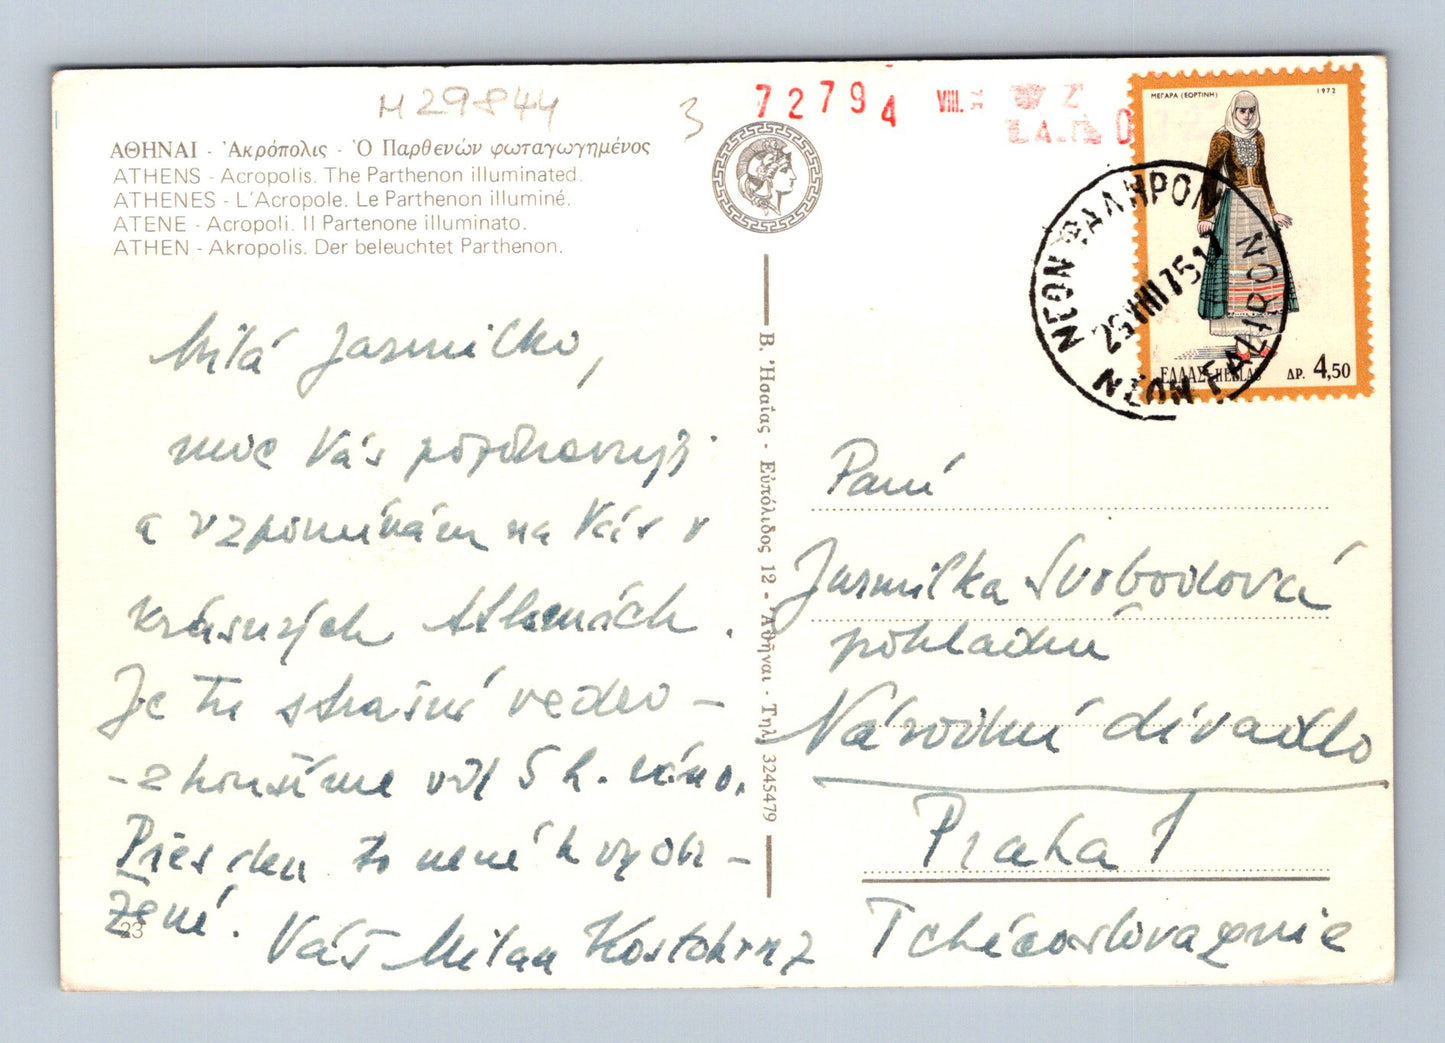 M 29844
3
72794
VIII.
ΑΘΗΝΑΙ - Ἀκρόπολις - Ὁ Παρθενών φωταγωγημένος
ATHENS - Acropolis. The Parthenon illuminated.
ATHENES - L'Acropole. Le Parthenon illuminé.
ATENE - Acropoli. Il Partenone illuminato.
ATHEN - Akropolis. Der beleuchtet Parthenon.
ΜΕΓΑΡΑ (ΕΟΡΤΙΝΗ) 1972
ΕΛΛΑΣ-HELLAS ΔΡ. 4,50
ΝΕΟΝ ΦΑΛΗΡΟΝ
25 VIII 75 17
NEON FALIRON
Milá Jarmilko,
moc Vás pozdravuji
a vzpomínám na Vás v
krásných Athenách.
Je tu strašné vedro -
- zkoušíme od 5 h. ráno.
Přes den to není k vydr-
žení.
Váš Milan Kostohryz
23
Β. Ἡσαΐας - Εὐπόλιδος 12 - Ἀθῆναι - Τηλ. 3245479
Paní
Jarmilka Svobodová
pokladna
Národní divadlo
Praha 1
Tchécoslovaquie